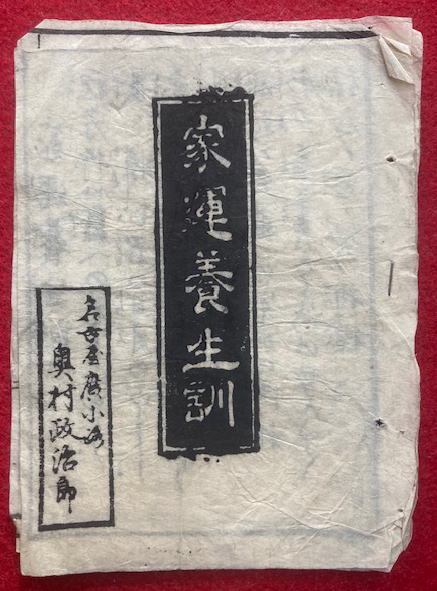 家運養生訓
名古屋廣小路
奥村政治郎